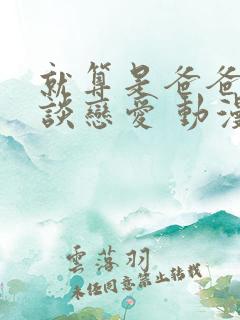 就算是爸爸
談戀愛 動漫
雲落羽
未經同意禁止轉載